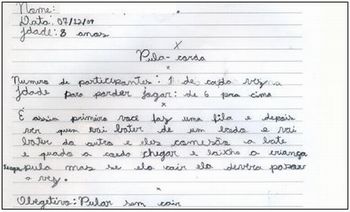 Nome:
Data: 07/12/09
Idade: 8 anos
X
Pula-corda
x
Numero de participantes: 1 de cada vez
Idade para poder jogar: de 6 pra cima
x
E assin primeiro você faz uma fila e depois
ver quem vai bater de um lado e vai
bater do outro e eles comesão a bate
e quado a corda chegar e baixo a criança
pula mas se ela cair ela devera passar
a vez.
x
Obegetivo: Pular sem cair